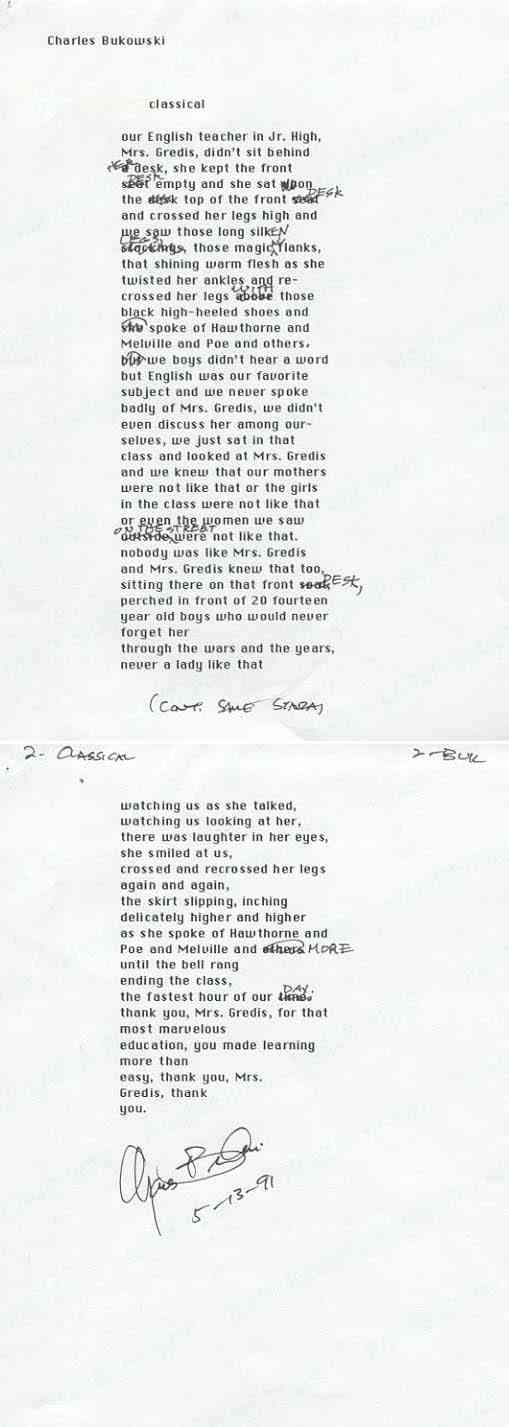 Charles Bukowski
classical
our English teacher in Jr. High,
Mrs. Gredis, didn't sit behind
HER
a desk, she kept the front
DESK
seat empty and she sat upon
DESK
the desk top of the front seat
and crossed her legs high and
we saw those long silkEN
LEGS,
stockings, those magic flanks,
that shining warm flesh as she
twisted her ankles and re-
WITH
crossed her legs above those
black high-heeled shoes and
she spoke of Hawthorne and
Melville and Poe and others.
but we boys didn't hear a word
but English was our favorite
subject and we never spoke
badly of Mrs. Gredis, we didn't
even discuss her among our-
selves, we just sat in that
class and looked at Mrs. Gredis
and we knew that our mothers
were not like that or the girls
in the class were not like that
or even the women we saw
ON THE STREET
outside were not like that.
nobody was like Mrs. Gredis
and Mrs. Gredis knew that too,
sitting there on that front seat, DESK,
perched in front of 20 fourteen
year old boys who would never
forget her
through the wars and the years,
never a lady like that
(CONT. SAME STANZA)
2- CLASSICAL
2-BUK
watching us as she talked,
watching us looking at her,
there was laughter in her eyes,
she smiled at us,
crossed and recrossed her legs
again and again,
the skirt slipping, inching
delicately higher and higher
as she spoke of Hawthorne and
Poe and Melville and others MORE
until the bell rang
ending the class,
DAY.
the fastest hour of our time.
thank you, Mrs. Gredis, for that
most marvelous
education, you made learning
more than
easy, thank you, Mrs.
Gredis, thank
you.
5-13-91